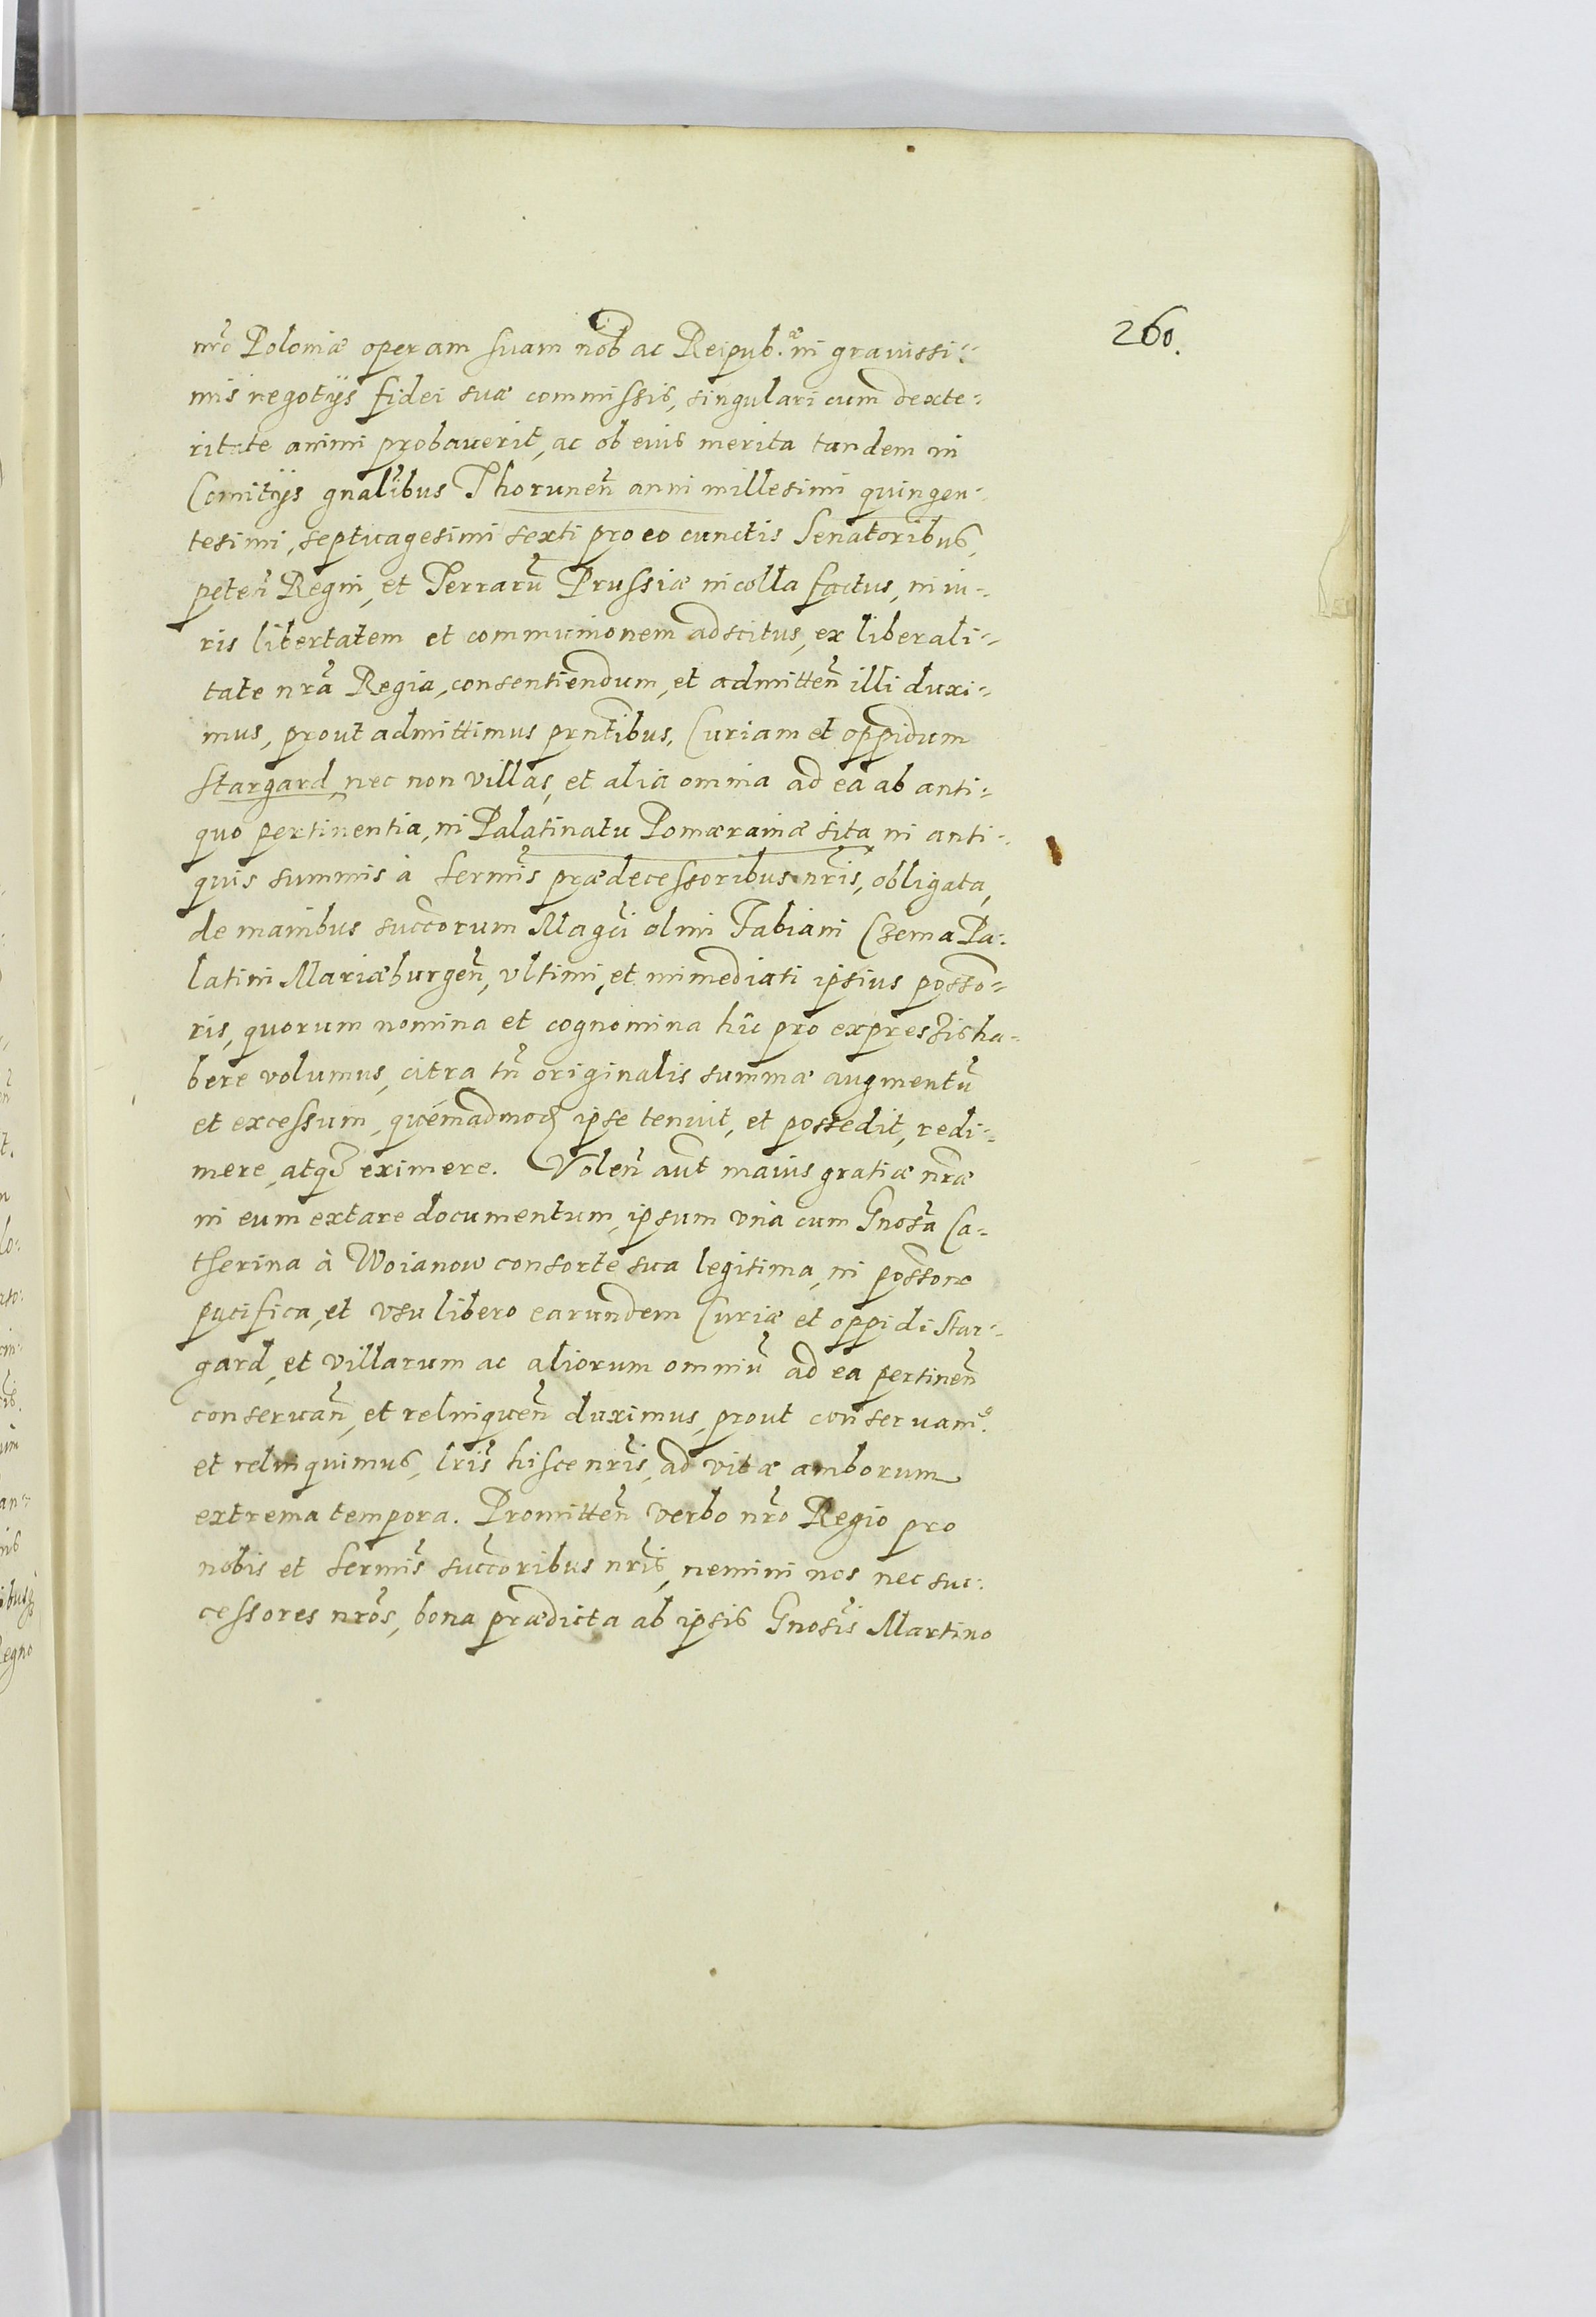 260.
nr̃o Poloniæ operam suam nob̃ ac Reipub.æ in grauissi=
mis negotijs fidei suæ commissis, singulari cum dexte=
ritate animi probauerit, ac ob eius merita tandem in
Comitijs gnãlibus Thorunen̄ anni millesimi quingen=
tesimi, septuagesimi sexti pro eo cunctis Senatoribus,
peten̄ Regni, et Terrarũ Prussiæ incolla factus, in iu=
ris libertatem et communionem adscitus, ex liberali=
tate nr̃a Regia, consentiendum, et admitten̄ illi duxi=
mus, prout admittimus pr̃ntibus, Curiam et oppidum
Stargard, nec non villas, et alia omnia ad ea ab anti=
quo pertinentia, in Palatinatu Pomæraniæ sita in anti=
quis summis à Serm̃is prædecessoribus nr̃is, obligata,
de manibus succõrum Magc̃i olim Fabiani Czema Pa=
latini Mariæburgen̄, vltimi, et immediati ipsius possõ=
ris, quorum nomina et cognomina hîc pro expressis ha=
bere volumus, citra tñ originalis summæ augmentũ
et excessum, quemadmoð ipse tenuit, et possedit, redi=
mere, atq₃ eximere. Volen̄ aũt maius gratiæ nr̃æ
in eum extare documentum, ipsum vna cum Gnosã Ca=
therina à Woianow consorte sua legitima, in possõne
pacifica, et vsu libero earundem Curiæ et oppidi Star=
gard, et villarum ac aliorum omniũ ad ea pertinen̄
conseruan̄, et relinquen̄ duximus, prout conseruam9.
et relinquimus, lr̃is hisce nr̃is, ad vitæ amborum
extrema tempora. Promitten̄ verbo nr̃o Regio pro
nobis et Serm̃is succõribus nr̃is, nemini nos nec suc=
cessores nr̃os, bona prædicta ab ipsis Gnosĩs Martino